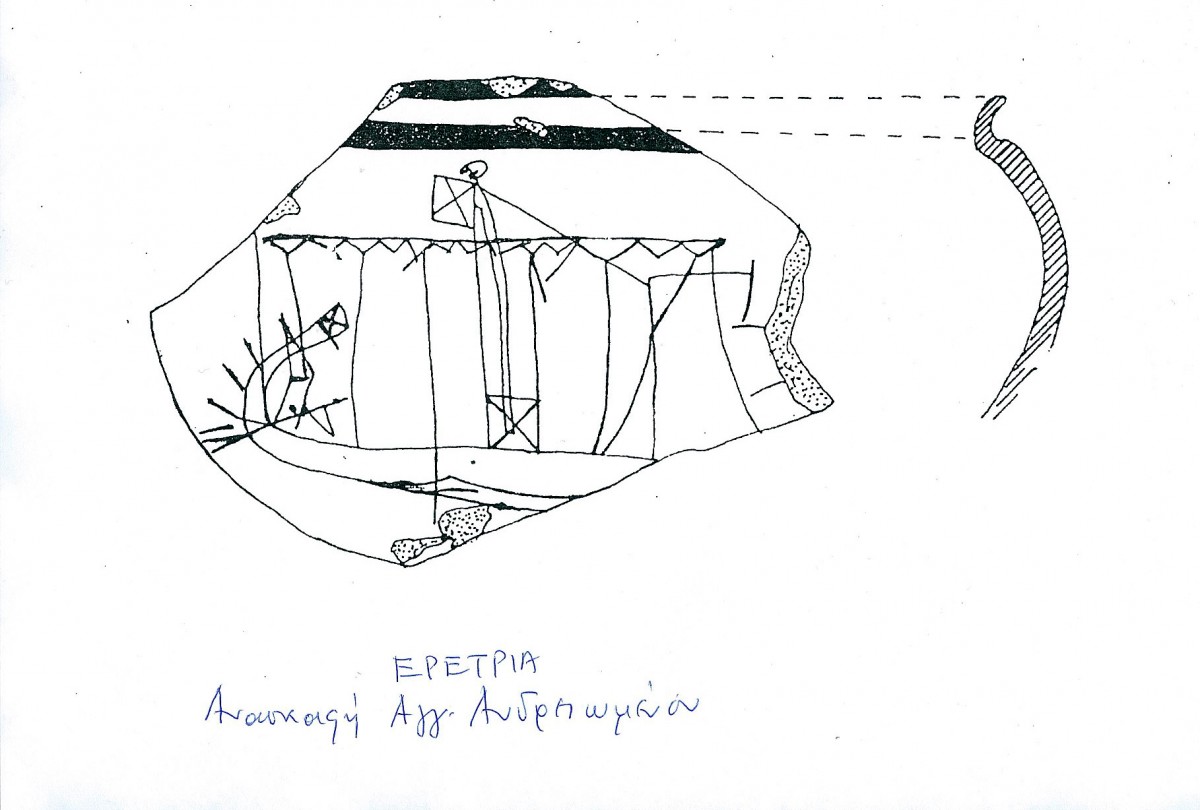 ΕΡΕΤΡΙΑ
Ανασκαφή Αγγ. Ανδρειωμένου